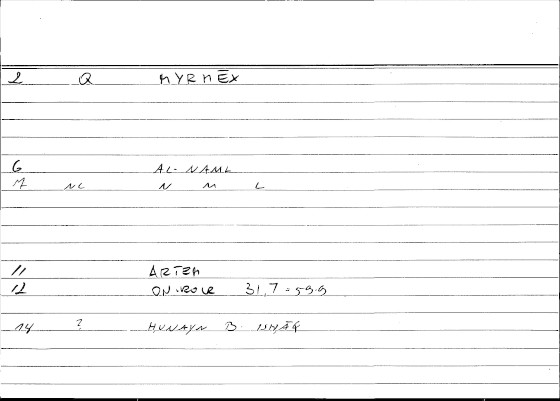 2 Q MYRMĒX
6 AL-NAML
7 NL N M L
11 ARTEM
12 ON.ROLE 31,7 = 59.9
14 ? HUNAYN B. ISHĀQ